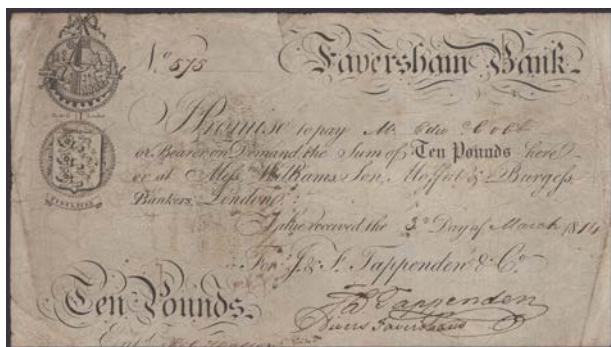 No 575
Faversham Bank.
I Promise to pay Mr. Edw
or Bearer on Demand the Sum of Ten Pounds here
or at Messrs Williams Son, Moffat & Burgess,
Bankers, London.
Value received the 3rd Day of March 1814
For J. & F. Tappenden & Co
Ten Pounds.
Tappenden
Entd